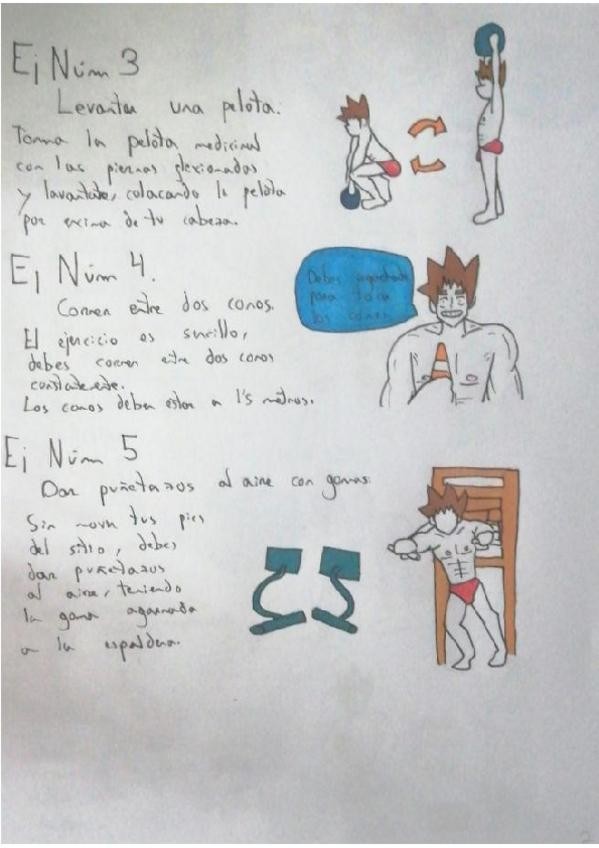 Ej Núm 3
Levantar una pelota.
Toma la pelota medicinal
con las piernas flexionadas
y lavantate, colacando la pelota
por encima de tu cabeza.
Ej Núm 4.
Correr entre dos conos.
El ejercicio es sencillo,
debes correr entre dos conos
constantemente.
Los conos deben estar a 1'5 metros.
Debes agacharte
para tocar
los conos
Ej Núm 5
Dar puñetazos al aire con gomas.
Sin mover tus pies
del sitio, debes
dar puñetazos
al aire, teniendo
la goma agarrada
a la espaldera.
2